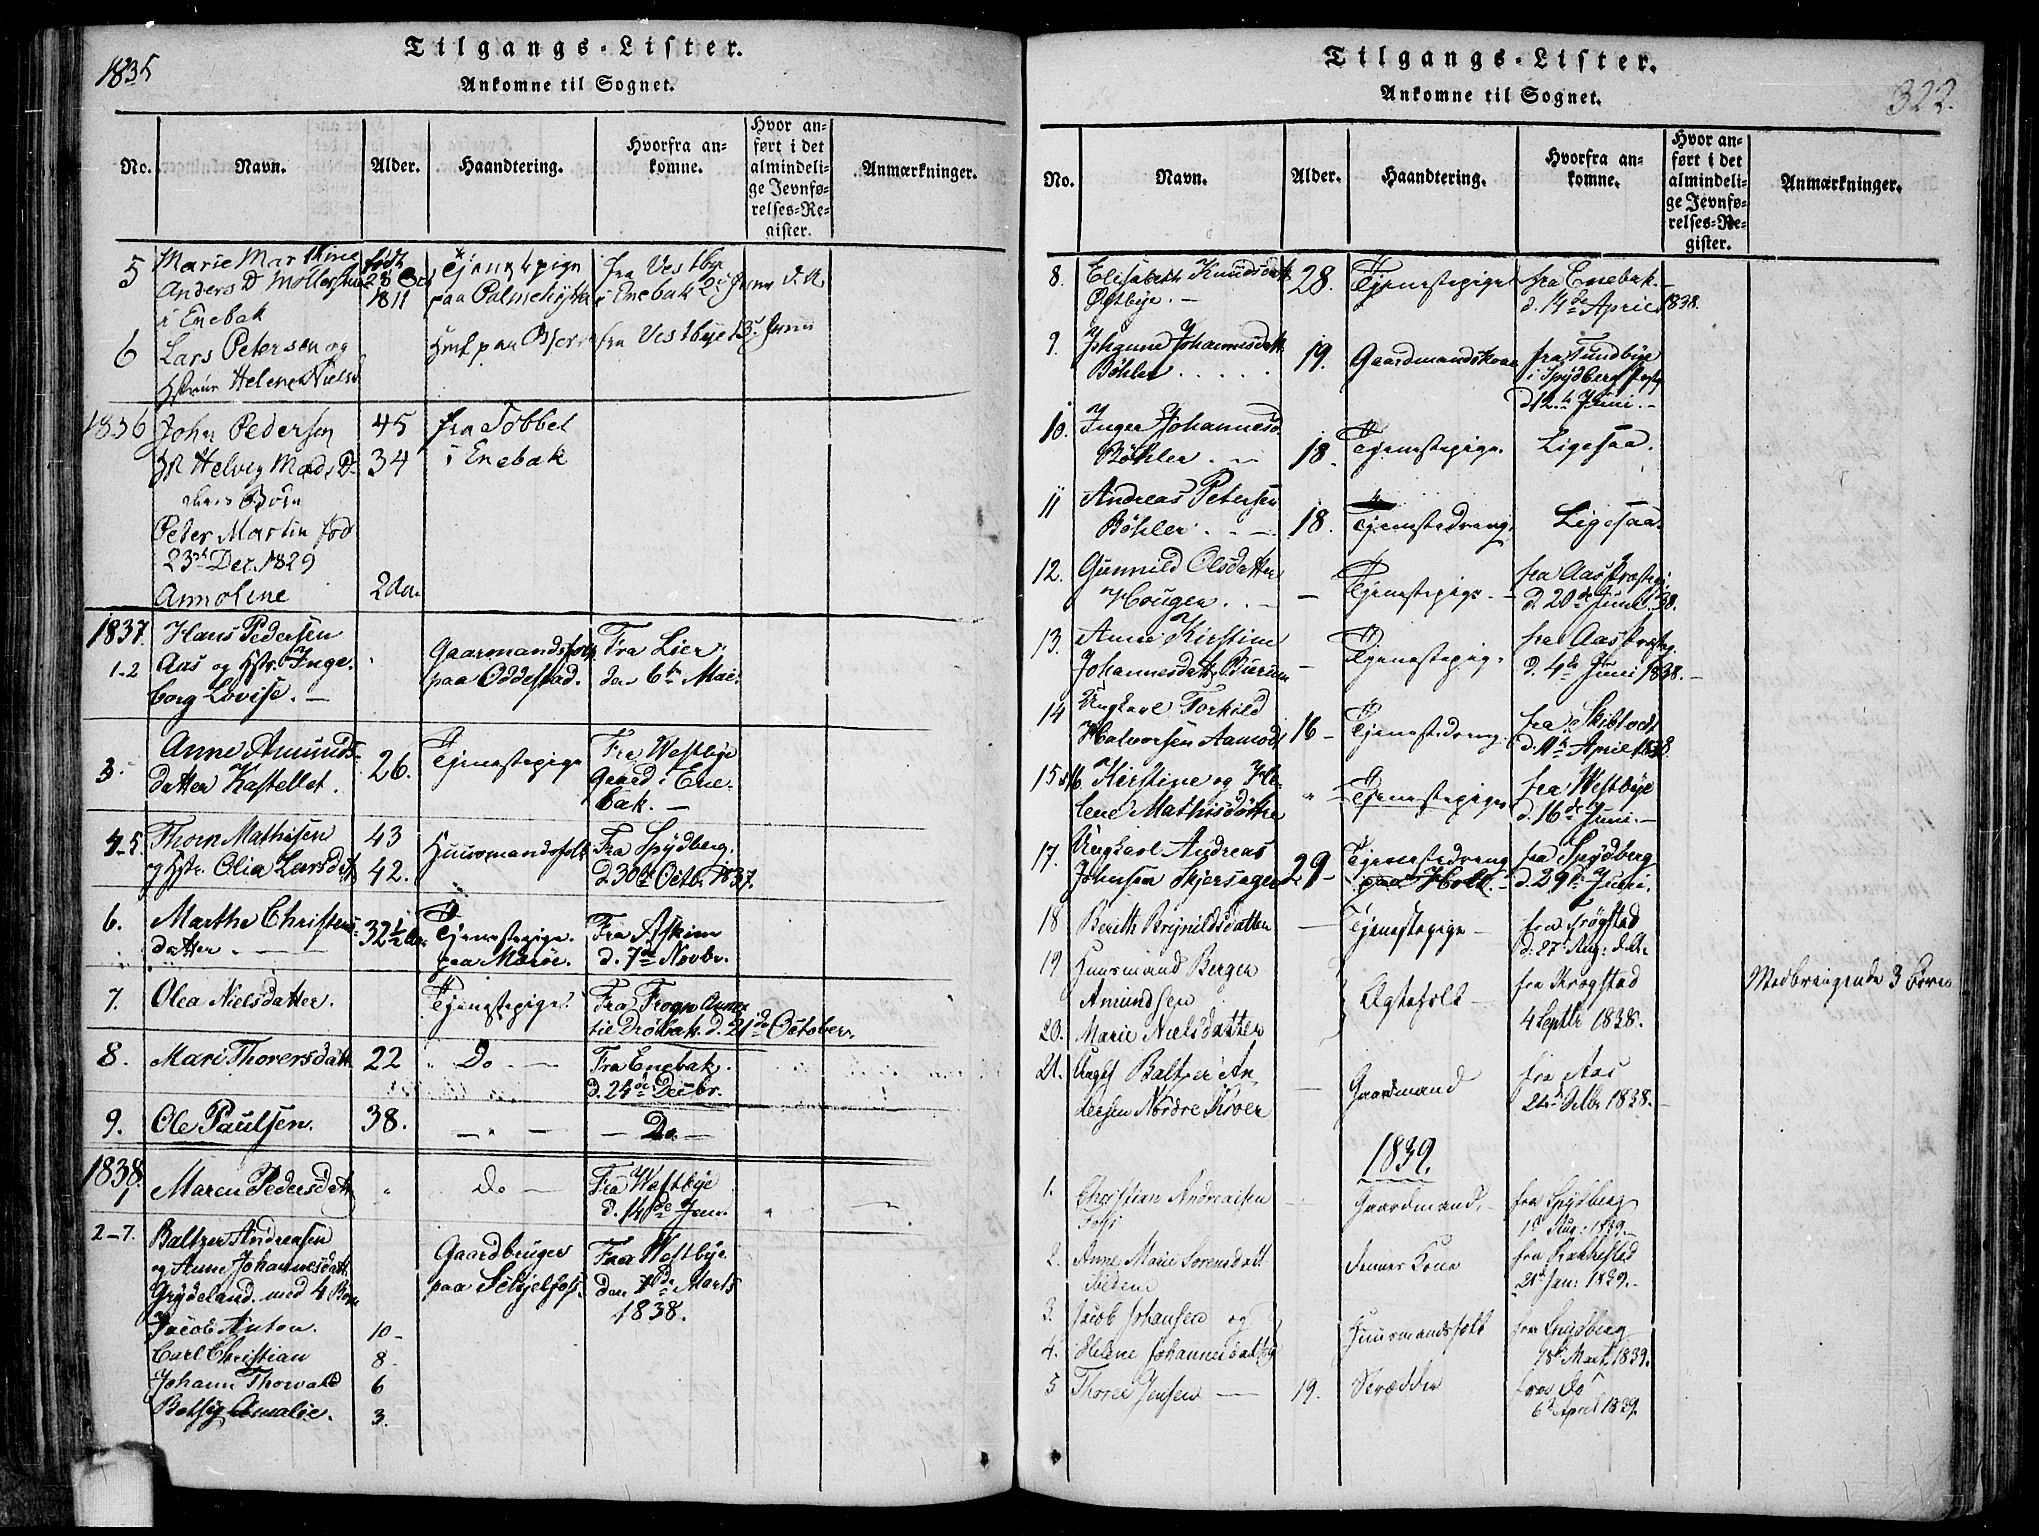 1835
Tilgangs-Lister.
Ankomne til Sognet.
No.
Navn.
Alder.
Haandtering.
Hvorfra an-
komne.
Hvor an-
ført i det
almindeli-
ge Jevnfø-
relses-Re-
gister.
Anmærkninger.
5
Marie Marthine
Anders D
i Enebak
født
1811
Tjenestpige
paa
fra Vestbye
i Enebak
6
Lars Petersen og
Helene Niels
paa
fra Vestbye
1836
John Pedersen
45
fra Tobbel
Helvig Mads D
34
i Enebak
Børn
Peter Martin fød
23 Dec. 1829
Anne Line
1837.
1-2
Hans Pedersen
Aas og Hstr. Inge-
borg Lovise. -
Gaarmandsfolk
paa Oddestad.
Fra Lier
den 6te Mai.
3.
Anne Amunds-
datter Kastellet.
26.
Tjenestepige
Fra Westbye
Gaard i Ene-
bak. -
4-5.
Thorn Mathisen
og Hstr. Olia Larsdatt
43
42.
Huusmandsfolk
Fra Spydberg.
d. 30te Octbr. 1837.
6.
Marthe Christens-
datter.
32½
Tjenestepige
paa
Fra Askim
d. 7de Novbr.
7.
Olea Nielsdatter.
Tjenestepige
Fra Frogn Annex
til Drøbak. d. 21de October.
8.
Mari Thorersdatt
22
Do
Fra Enebak.
d. 24de Decbr.
9.
Ole Paulsen.
38.
Do
1838.
1
Maren Pedersdatt
Do
Fra Westbye
d. 14de Jan.
2-7.
Baltzer Andreasen
og Anne Johannesdatt
Grydeland. med 4 Børn
Gaardbruger
paa
Fra Westbye
den 7de Marts
1838.
Jacob Anton.
10-
Carl Christian
8-
Johann Thorvald
6
Betsy Amalie.
3.
Tilgangs-Lister.
Ankomne til Sognet.
322.
No.
Navn.
Alder.
Haandtering.
Hvorfra an-
komne.
Hvor an-
ført i det
almindeli-
ge Jevnfø-
relses-Re-
gister.
Anmærkninger.
8.
Elisabeth Knudsdatt
Østbye. -
28.
Tjenestepige
fra Enebak.
d. 14de April 1838.
9.
Johannesdatt
Bøhler
19.
Gaardmandskone
fra
i Spydberg
d. 12te Juni.-
10.
Inger Johannesd.
Bøhler.
18.
Tjenestepige.
Ligesaa.
11
Andreas Petersen
Bøhler
18.
Tjenestedreng.
Ligesaa.
12.
Gunnild Olsdatter
Hougen.
Tjenestepige
fra Aas Præstegj.
d. 20de Juni 38.
13.
Anne Kirstine
Johannesdatt
Tjenestepige
fra Aas Præsteg.
d. 4de Juni 1838.
14
Ungkarl Torkild
Halvorsen Aamodt
16
Tjenestedreng.
fra Skibtvedt
d. 11te April 1838.
15 & 16.
Kirstine og He-
lene Mathisdøttre
Tjenestepiger
fra Westbye
d. 16de Juni.
17.
Ungkarl Andreas
Johnsen
29
Tjenestedreng
paa Holt.
fra Spydberg
d. 29de Juni.
18
Berith Brynildsdatter
Tjenestepige
fra Trøgstad
d: 27 Aug:
19
Huusmand Berger
Amundsen
Ægtefolk
fra Krogstad
4 Septbr 1838.
Medbringende 3 Børn
20.
Marie Nielsdatter
21.
Ungk Baltzer An
dersen Nordre Kroer
Gaardmand
fra Aas
1838.
1839.
1.
Christian Andreasen
Gaardmand.
fra Spydberg
Aug: 1839
2.
Anne Marie Sorensdatt
ibidem
dennes Kone
fra Rakkestad
Jan: 1839.
3.
Jacob Johansen og
Huusmandsfolk
fra Spydberg
18 Mart. 1839.
4.
Helene Johannesdatter
5
Thorer Jensen
19.
Skrædder
fra do
6 April 1839.